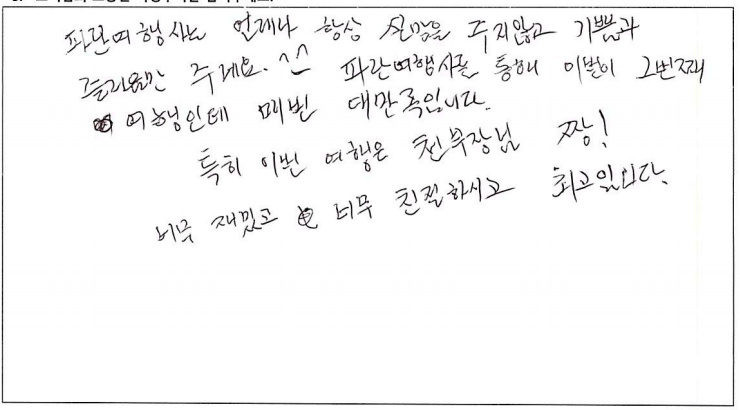 파란여행사는 언제나 항상 실망을 주지않고 기쁨과
즐거움만 주네요. ^^ 파란여행사를 통해 이번이 2번째
여행인데 매번 대만족입니다.
특히 이번 여행은 천부장님 짱!
너무 재밌고 너무 친절하시고 최고입니다.